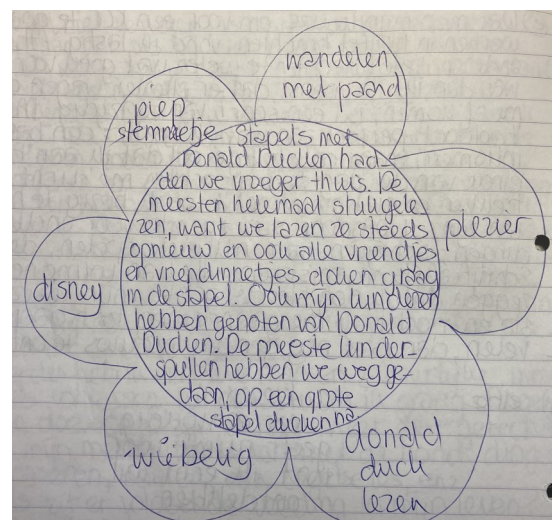 wandelen
met paard
piep
stemmetje
plezier
disney
wiebelig
donald
duck
lezen
Stapels met
Donald Ducken had-
den we vroeger thuis. De
meesten helemaal stukgele
zen, want we lazen ze steeds
opnieuw en ook alle vriendjes
en vriendinnetjes doken graag
in de stapel. Ook mijn kinderen
hebben genoten van Donald
Ducken. De meeste kinder-
spullen hebben we weg ge-
daan, op een grote
stapel ducken na.